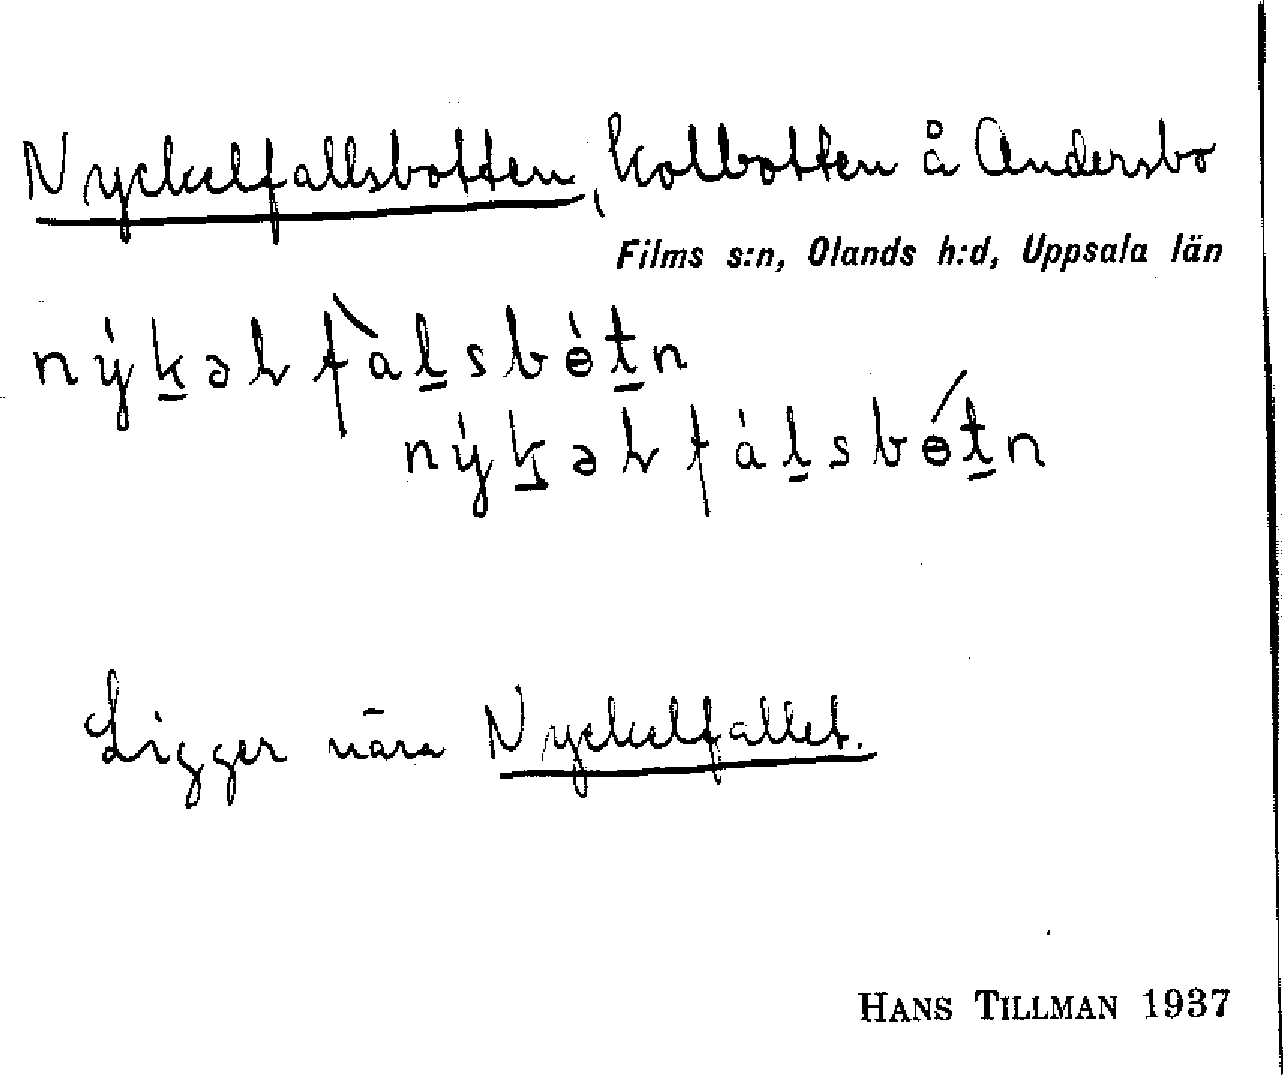 Nyckelfallsbotten, kolbotten å Andersbo
Films s:n, Olands h:d, Uppsala län
nýḵəl fàḻsbɵ̀ṯn
nýḵəl fáḻsbɵ́ṯn
Ligger nära Nyckelfallet.
HANS TILLMAN 1937